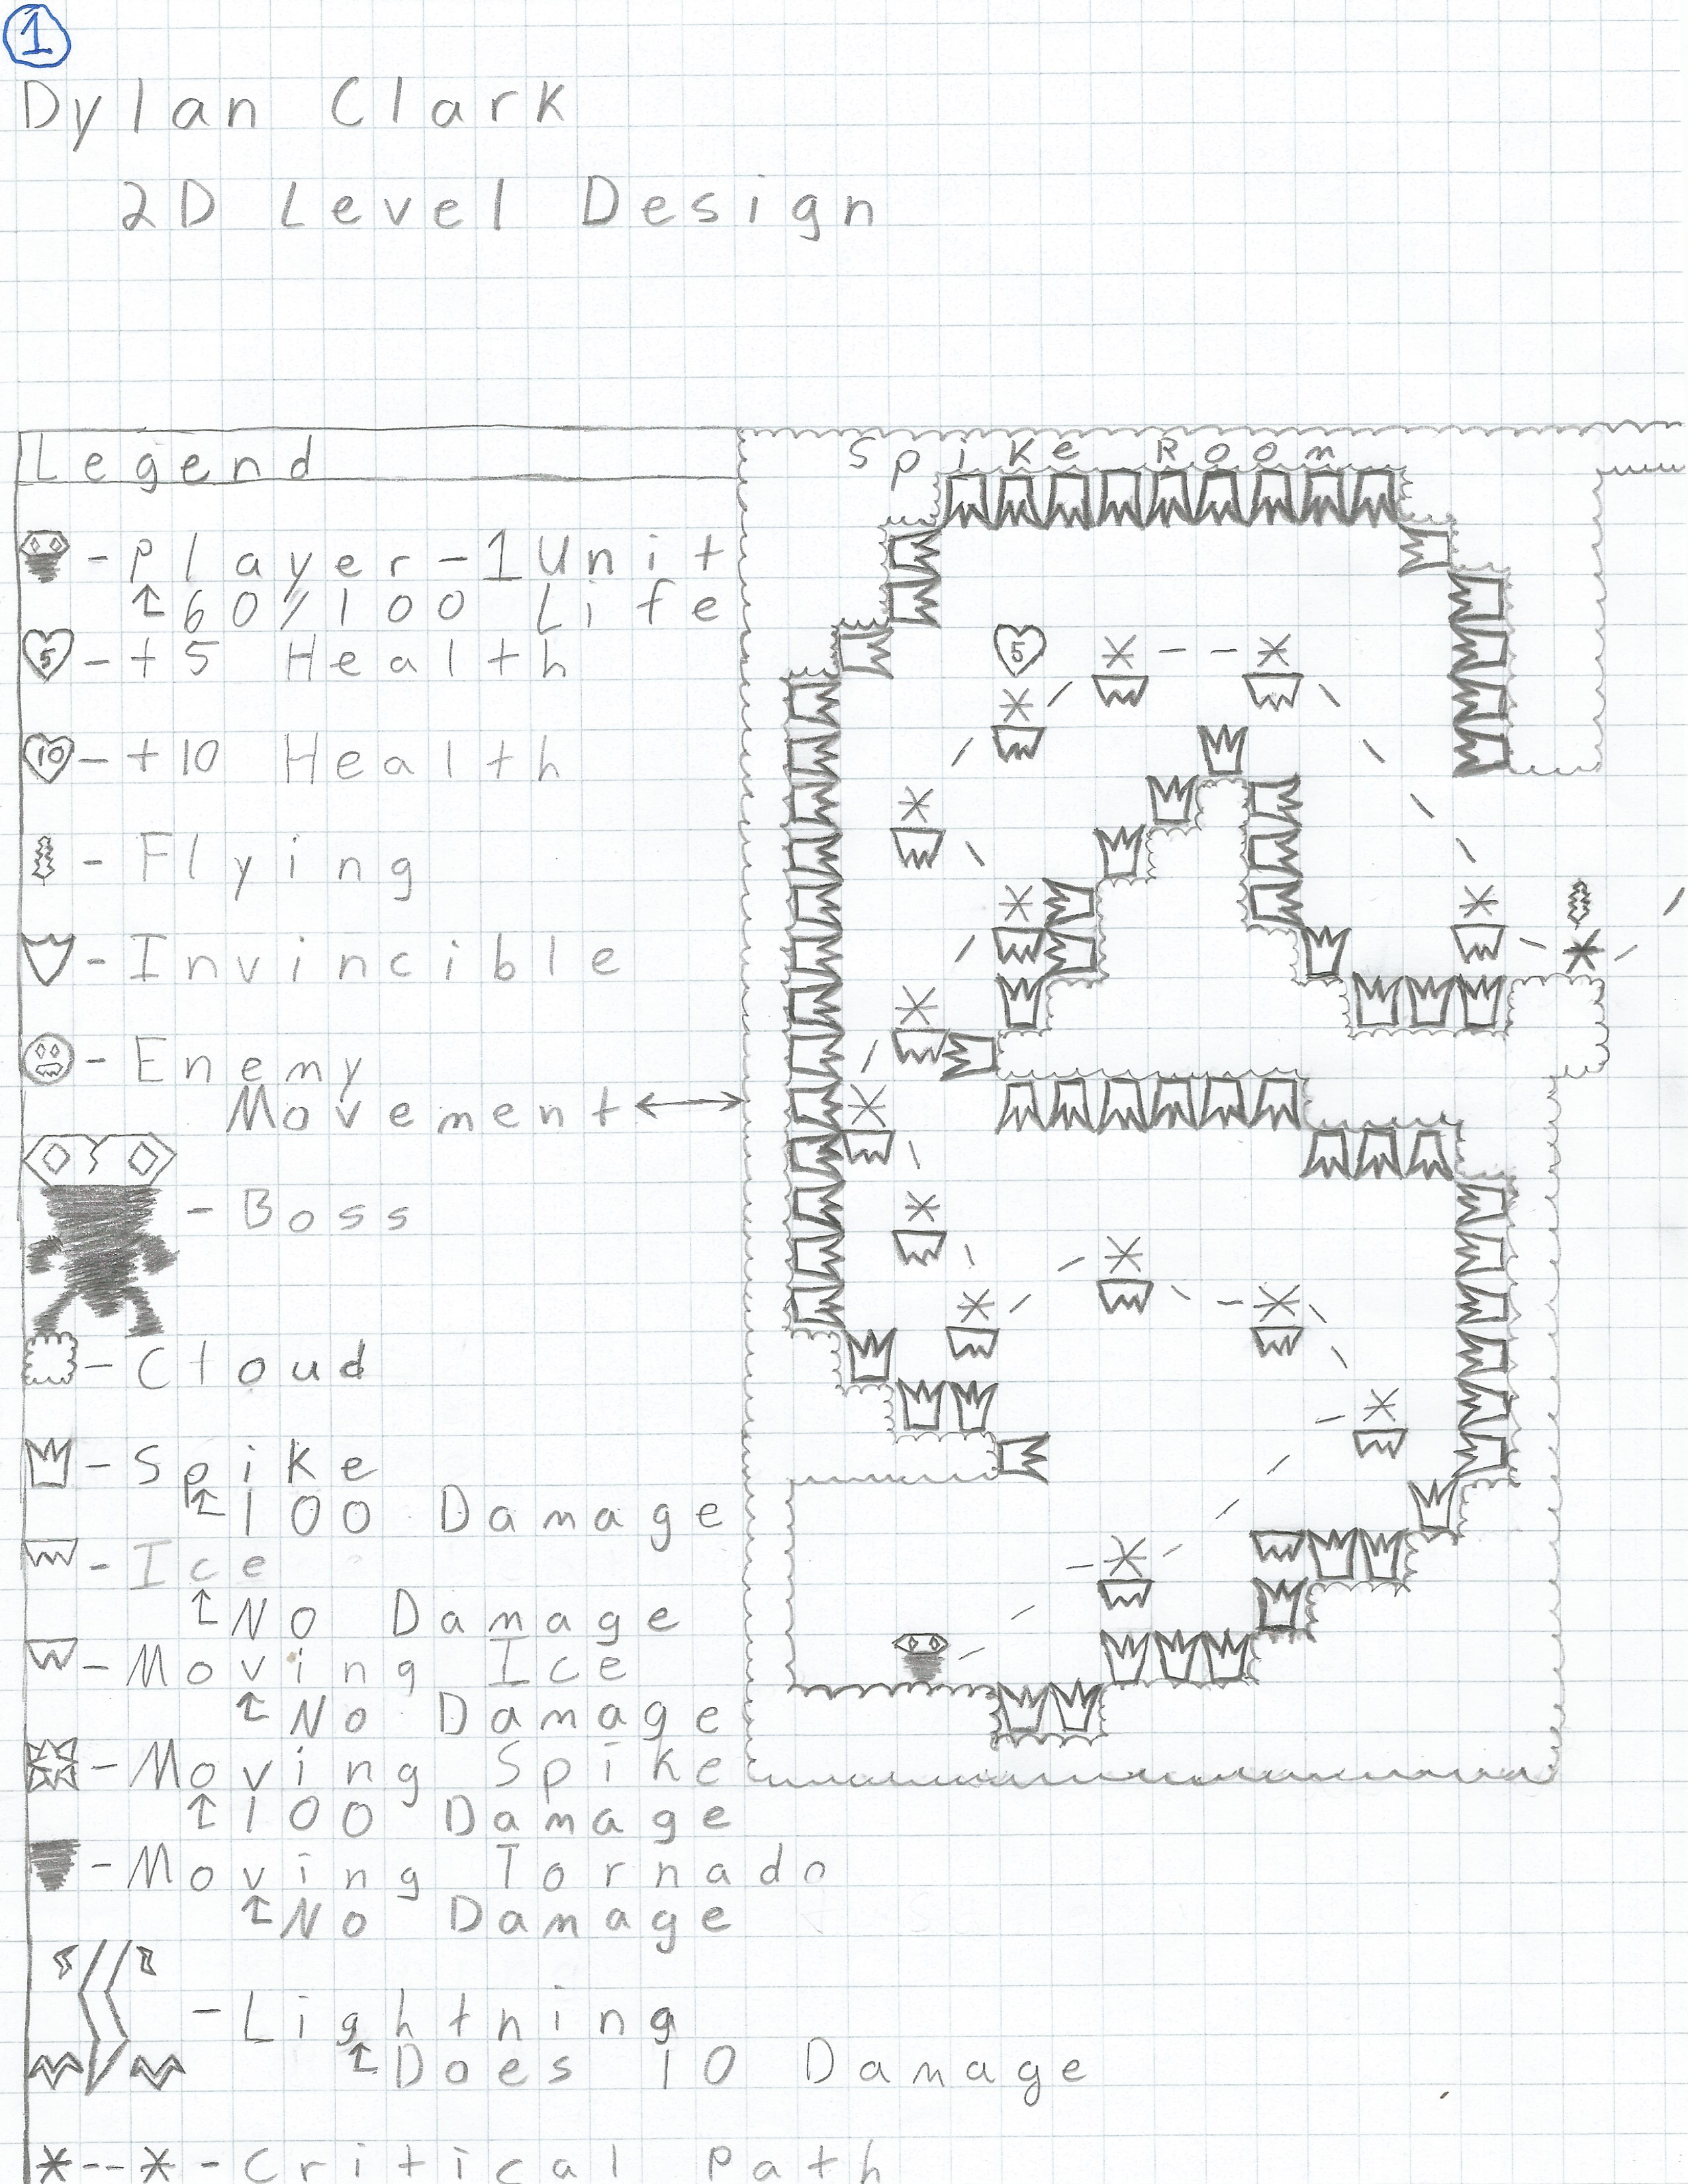 1
Dylan Clark
2D Level Design
Legend
Spike Room
- Player - 1 Unit
60/100 Life
5 - +5 Health
5
10 - +10 Health
- Flying
- Invincible
- Enemy
Movement
- Boss
- Cloud
- Spike
100 Damage
- Ice
No Damage
- Moving Ice
No Damage
- Moving Spike
100 Damage
- Moving Tornado
No Damage
- Lightning
Does 10 Damage
*--* - Critical Path